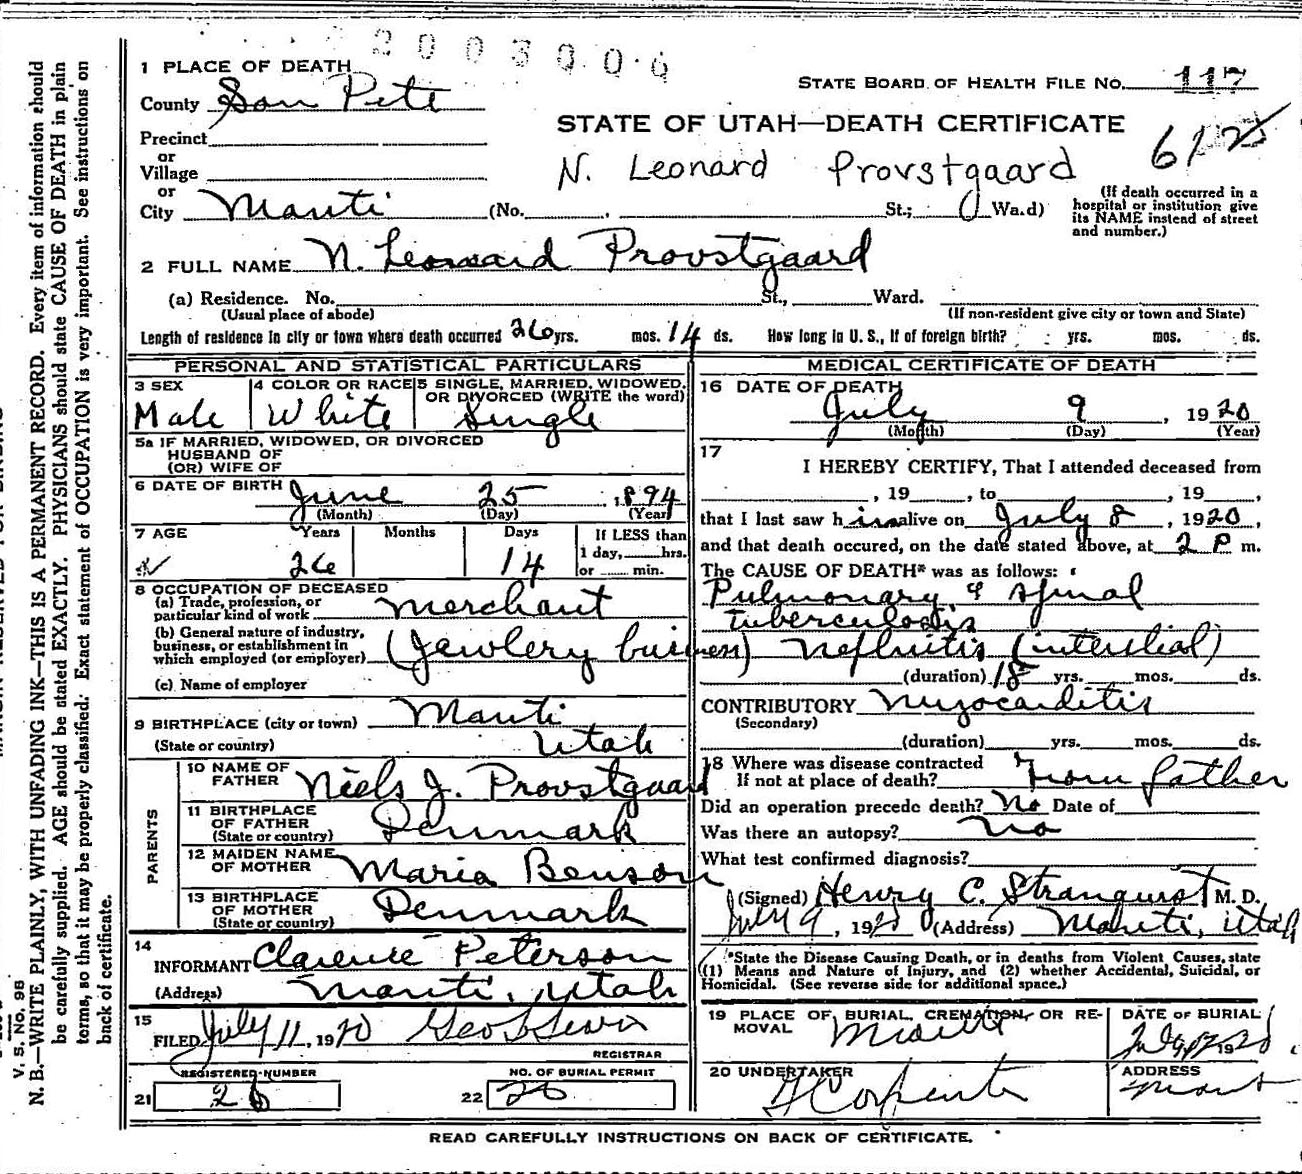 2003006
1 PLACE OF DEATH
STATE BOARD OF HEALTH FILE NO. 117
County San Pete
STATE OF UTAH—DEATH CERTIFICATE
Precinct
or
Village
N. Leonard Provstgaard
or
City Manti (No. , St.; Wa.d)
(If death occurred in a hospital or institution give its NAME instead of street and number.)
2 FULL NAME N. Leonard Provstgaard
(a) Residence. No. St., Ward.
(Usual place of abode) (If non-resident give city or town and State)
Length of residence in city or town where death occurred 26 yrs. mos. 14 ds. How long in U. S., if of foreign birth? yrs. mos. ds.
PERSONAL AND STATISTICAL PARTICULARS
3 SEX Male
4 COLOR OR RACE White
5 SINGLE, MARRIED, WIDOWED, OR DIVORCED (WRITE the word) Single
5a IF MARRIED, WIDOWED, OR DIVORCED
HUSBAND OF
(OR) WIFE OF
6 DATE OF BIRTH June 25, 1894
(Month) (Day) (Year)
7 AGE Years Months Days If LESS than
1 day, hrs.
26 14 or min.
8 OCCUPATION OF DECEASED
(a) Trade, profession, or
particular kind of work Merchant
(b) General nature of industry,
business, or establishment in
which employed (or employer) (Jewlery business)
(c) Name of employer
9 BIRTHPLACE (city or town) Manti
(State or country) Utah
PARENTS
10 NAME OF FATHER Niels J. Provstgaard
11 BIRTHPLACE OF FATHER (State or country) Denmark
12 MAIDEN NAME OF MOTHER Maria Benson
13 BIRTHPLACE OF MOTHER (State or country) Denmark
14
INFORMANT Clarence Peterson
(Address) Manti, Utah
15
FILED July 11, 1920
REGISTRAR
REGISTERED NUMBER
21 26
NO. OF BURIAL PERMIT
22 26
MEDICAL CERTIFICATE OF DEATH
16 DATE OF DEATH
July 9, 1920
(Month) (Day) (Year)
17
I HEREBY CERTIFY, That I attended deceased from
, 19 , to , 19 ,
that I last saw him alive on July 8, 1920,
and that death occured, on the date stated above, at 2 P m.
The CAUSE OF DEATH* was as follows:
Pulmonary & spinal
tuberculosis
Nefhritis (interstial)
(duration) 18 yrs. mos. ds.
CONTRIBUTORY Myocarditis
(Secondary)
(duration) yrs. mos. ds.
18 Where was disease contracted
If not at place of death? From father
Did an operation precede death? No Date of
Was there an autopsy? No
What test confirmed diagnosis?
(Signed) Henry C. Stranquist M. D.
July 9, 1920 (Address) Manti, Utah
*State the Disease Causing Death, or in deaths from Violent Causes, state
(1) Means and Nature of Injury, and (2) whether Accidental, Suicidal, or
Homicidal. (See reverse side for additional space.)
19 PLACE OF BURIAL, CREMATION, OR REMOVAL Manti
DATE OF BURIAL
20 UNDERTAKER
ADDRESS
Manti
READ CAREFULLY INSTRUCTIONS ON BACK OF CERTIFICATE.
V. S. No. 98
N. B.—WRITE PLAINLY, WITH UNFADING INK—THIS IS A PERMANENT RECORD. Every item of information should
be carefully supplied. AGE should be stated EXACTLY. PHYSICIANS should state CAUSE OF DEATH in plain
terms, so that it may be properly classified. Exact statement of OCCUPATION is very important. See instructions on
back of certificate.